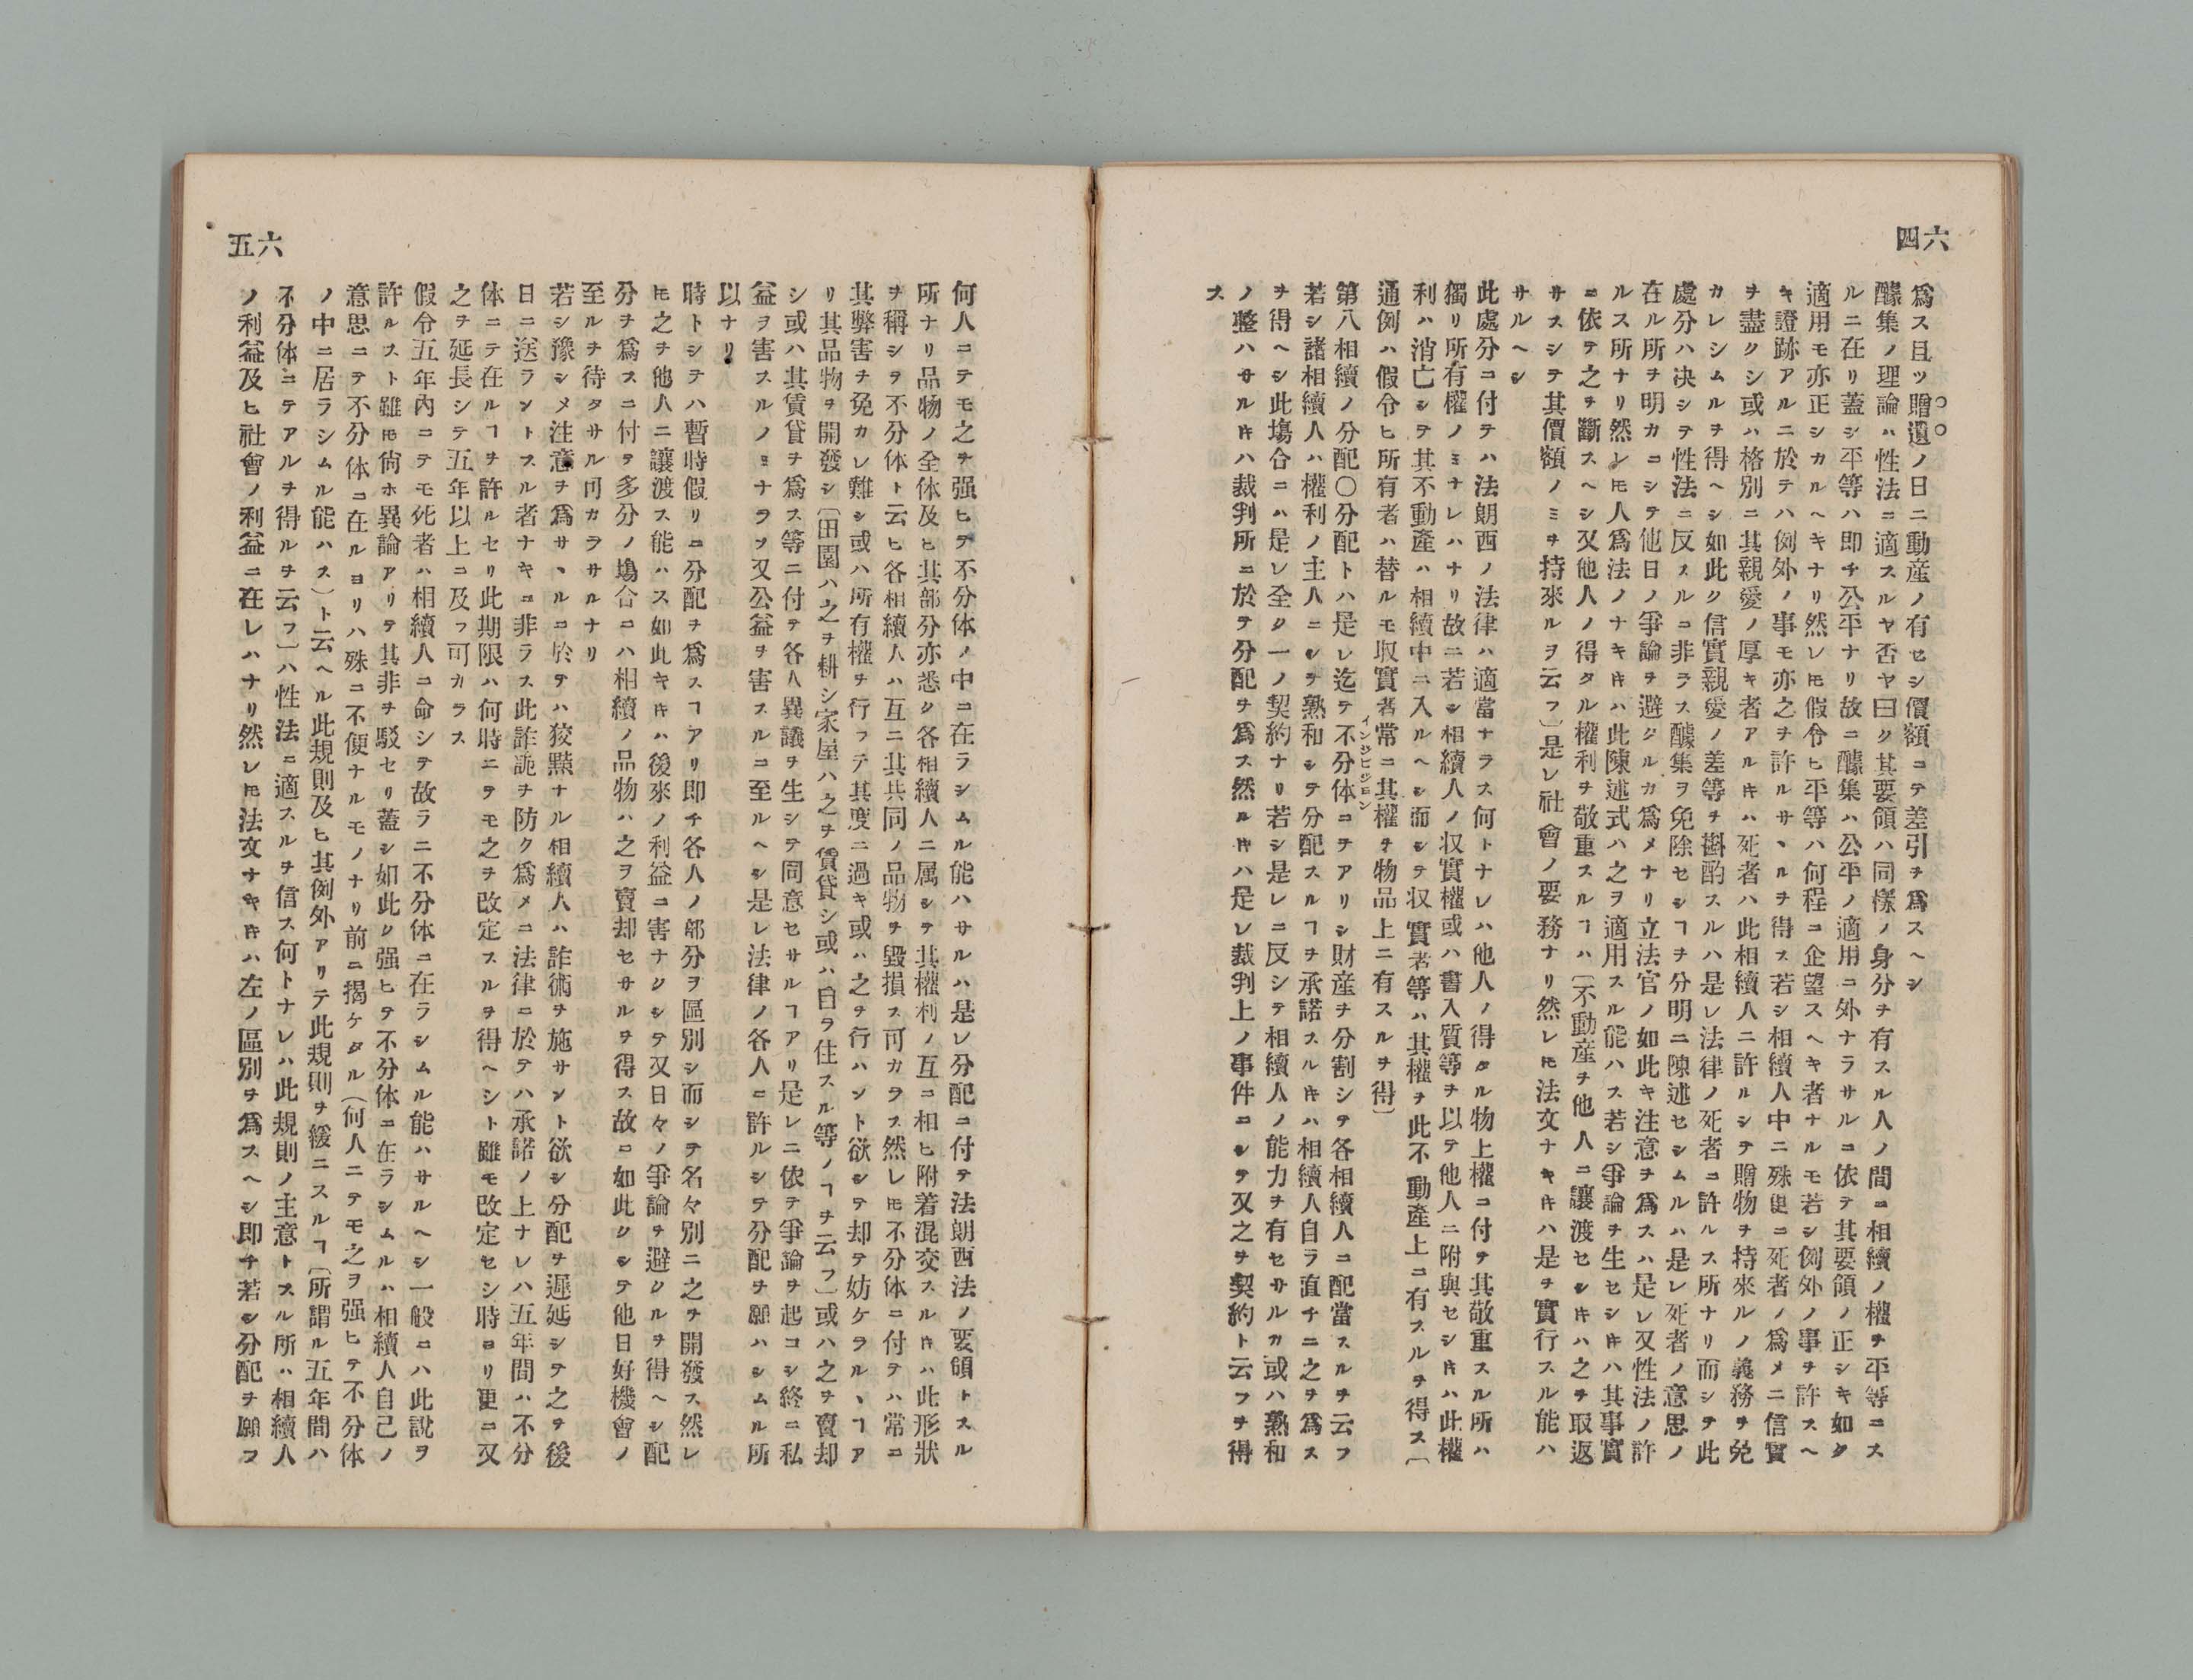 六四
爲ス且ツ贈遺ノ日ニ動産ノ有セシ價額ニテ差引チ爲スヘシ
醵集ノ理論ハ性法ニ適スルヤ否ヤ曰ク其要領ハ同樣ノ身分チ有スル人ノ間ニ相續ノ權チ平等ニス
ルニ在リ蓋シ平等ハ即チ公平ナリ故ニ醵集ハ公平ノ適用ニ外ナラサルコ依テ其要領ノ正シキ如ク
適用モ亦正シカルヘキナリ然レ𪜈假令ヒ平等ハ何程ニ企望スヘキ者ナルモ若シ例外ノ事チ許スヘ
キ證跡アルニ於テハ例外ノ事モ亦之チ許ルサヽルチ得ス若シ相續人中ニ殊更ニ死者ノ爲メニ信實
ヲ盡クシ或ハ格別ニ其親愛ノ厚キ者アル𪜈ハ死者ハ此相續人ニ許ルシテ贈物チ持來ルノ義務ヲ免
カレシムルヲ得ヘシ如此ク信實親愛ノ差等チ斟酌スルハ是レ法律ノ死者ニ許ルス所ナリ而シテ此
處分ハ决シテ性法ニ反スルニ非ラス醵集ヲ免除セシヿチ分明ニ陳述セシムルハ是レ死者ノ意思ノ
在ル所チ明カニシテ他日ノ爭論チ避クルカ爲メナリ立法官ノ如此キ注意チ爲スハ是レ又性法ノ許
ルス所ナリ然レ𪜈人爲法ノナキ𪜈ハ此陳述式ハ之ヲ適用スル能ハス若シ爭論チ生セシ𪜈ハ其事實
ニ依テ之チ斷スヘシ又他人ノ得タル權利ヲ敬重スルヿハ〔不動産チ他人ニ讓渡セシ𪜈ハ之チ取返
サスシテ其價額ノミヲ持來ルヲ云フ〕是レ社會ノ要務ナリ然レ𪜈法文ナキ𪜈ハ是チ實行スル能ハ
サルヘシ
此處分ニ付テハ法朗西ノ法律ハ適當ナラス何トナレハ他人ノ得タル物上權ニ付チ其敬重スル所ハ
獨リ所有權ノミナレハナリ故ニ若シ相續人ノ収實權或ハ書入質等チ以テ他人ニ附與セシ𪜈ハ此權
利ハ消亡シテ其不動産ハ相續中ニ入ルヘシ而シテ収實者等ハ其權ヲ此不動産上ニ有スルヲ得ス〔
通例ハ假令ヒ所有者ハ替ルモ収實者常ニ其權チ物品上ニ有スルヲ得〕
第八相續ノ分配〇分配トハ是レ迄テ不分体ニテアリシ財産チ分割シテ各相續人ニ配當スルチ云フ
若シ諸相續人ハ權利ノ主人ニシテ熟和シテ分配スルヿヲ承諾スル𪜈ハ相續人自ラ直チニ之ヲ爲ス
ヲ得ヘシ此塲合ニハ是レ全ク一ノ契約ナリ若シ是レニ反シテ相續人ノ能力チ有セサルカ或ハ熟和
ノ整ハサル𪜈ハ裁判所ニ於テ分配チ爲ス然ル𪜈ハ是レ裁判上ノ事件ニシテ又之ヲ契約ト云フチ得
ス
六五
何人ニテモ之チ强ヒテ不分体ノ中ニ在ラシムル能ハサルハ是レ分配ニ付テ法朗西法ノ要領トスル
所ナリ品物ノ全体及ヒ其部分亦悉ク各相續人ニ属シテ其權利ノ互ニ相ヒ附着混交スル𪜈ハ此形狀
ヲ稱シテ不分体ト云ヒ各相續人ハ互ニ其共同ノ品物チ毀損ス可カラス然レ𪜈不分体ニ付テハ常ニ
其弊害チ免カレ難シ或ハ所有權チ行フテ其度ニ過キ或ハ之チ行ハント欲シテ却テ妨ケラルヽヿア
リ其品物ヲ開發シ〔田園ハ之ヲ耕シ家屋ハ之チ賃貸シ或ハ自ラ住スル等ノヿチ云フ〕或ハ之チ賣却
シ或ハ其賃貸チ爲ス等ニ付テ各人異議チ生シテ同意セサルヿアリ是レニ依テ爭論ヲ起コシ終ニ私
益ヲ害スルノミナラス又公益ヲ害スルニ至ルヘシ是レ法律ノ各人ニ許ルシテ分配チ願ハシムル所
以ナリ
時トシテハ暫時假リニ分配チ爲スヿアリ即チ各人ノ部分ヲ區別シ而シテ名々別ニ之チ開發ス然レ
𪜈之チ他人ニ讓渡ス能ハス如此キ𪜈ハ後來ノ利益ニ害ナクシテ又日々ノ爭論チ避クルヲ得ヘシ配
分チ爲スニ付テ多分ノ塲合ニハ相續ノ品物ハ之ヲ賣却セサルヲ得ス故ニ如此クシテ他日好機會ノ
至ルチ待タサル可カラサルナリ
若シ豫シメ注意チ爲サヽルニ於テハ狡黠ナル相續人ハ詐術ヲ施サント欲シ分配ヲ遲延シテ之ヲ後
日ニ送ラントスル者ナキニ非ラス此詐謊チ防ク爲メニ法律ニ於テハ承諾ノ上ナレハ五年間ハ不分
体ニテ在ルヿヲ許ルセリ此期限ハ何時ニテモ之チ改定スルヲ得ヘシト雖モ改定セシ時ヨリ更ニ又
之チ延長シテ五年以上ニ及フ可カラス
假令五年內ニテモ死者ハ相續人ニ命シテ故ラニ不分体ニ在ラシムル能ハサルヘシ一般ニハ此說ヲ
許ルスト雖𪜈尙ホ異論アリテ其非ヲ駁セリ蓋シ如此ク强ヒテ不分体ニ在ラシムルハ相續人自己ノ
意思ニテ不分体ニ在ルヨリハ殊ニ不便ナルモノナリ前ニ揭ケタル（何人ニテモ之ヲ强ヒテ不分体
ノ中ニ居ラシムル能ハス）ト云ヘル此規則及ヒ其例外アリテ此規則チ緩ニスルヿ〔所謂ル五年間ハ
不分体ニテアルチ得ルチ云フ〕ハ性法ニ適スルチ信ス何トナレハ此規則ノ主意トスル所ハ相續人
ノ利益及ヒ社會ノ利益ニ在レハナリ然レ𪜈法文ナキ𪜈ハ左ノ區別ヲ爲スヘシ即チ若シ分配ヲ願フ